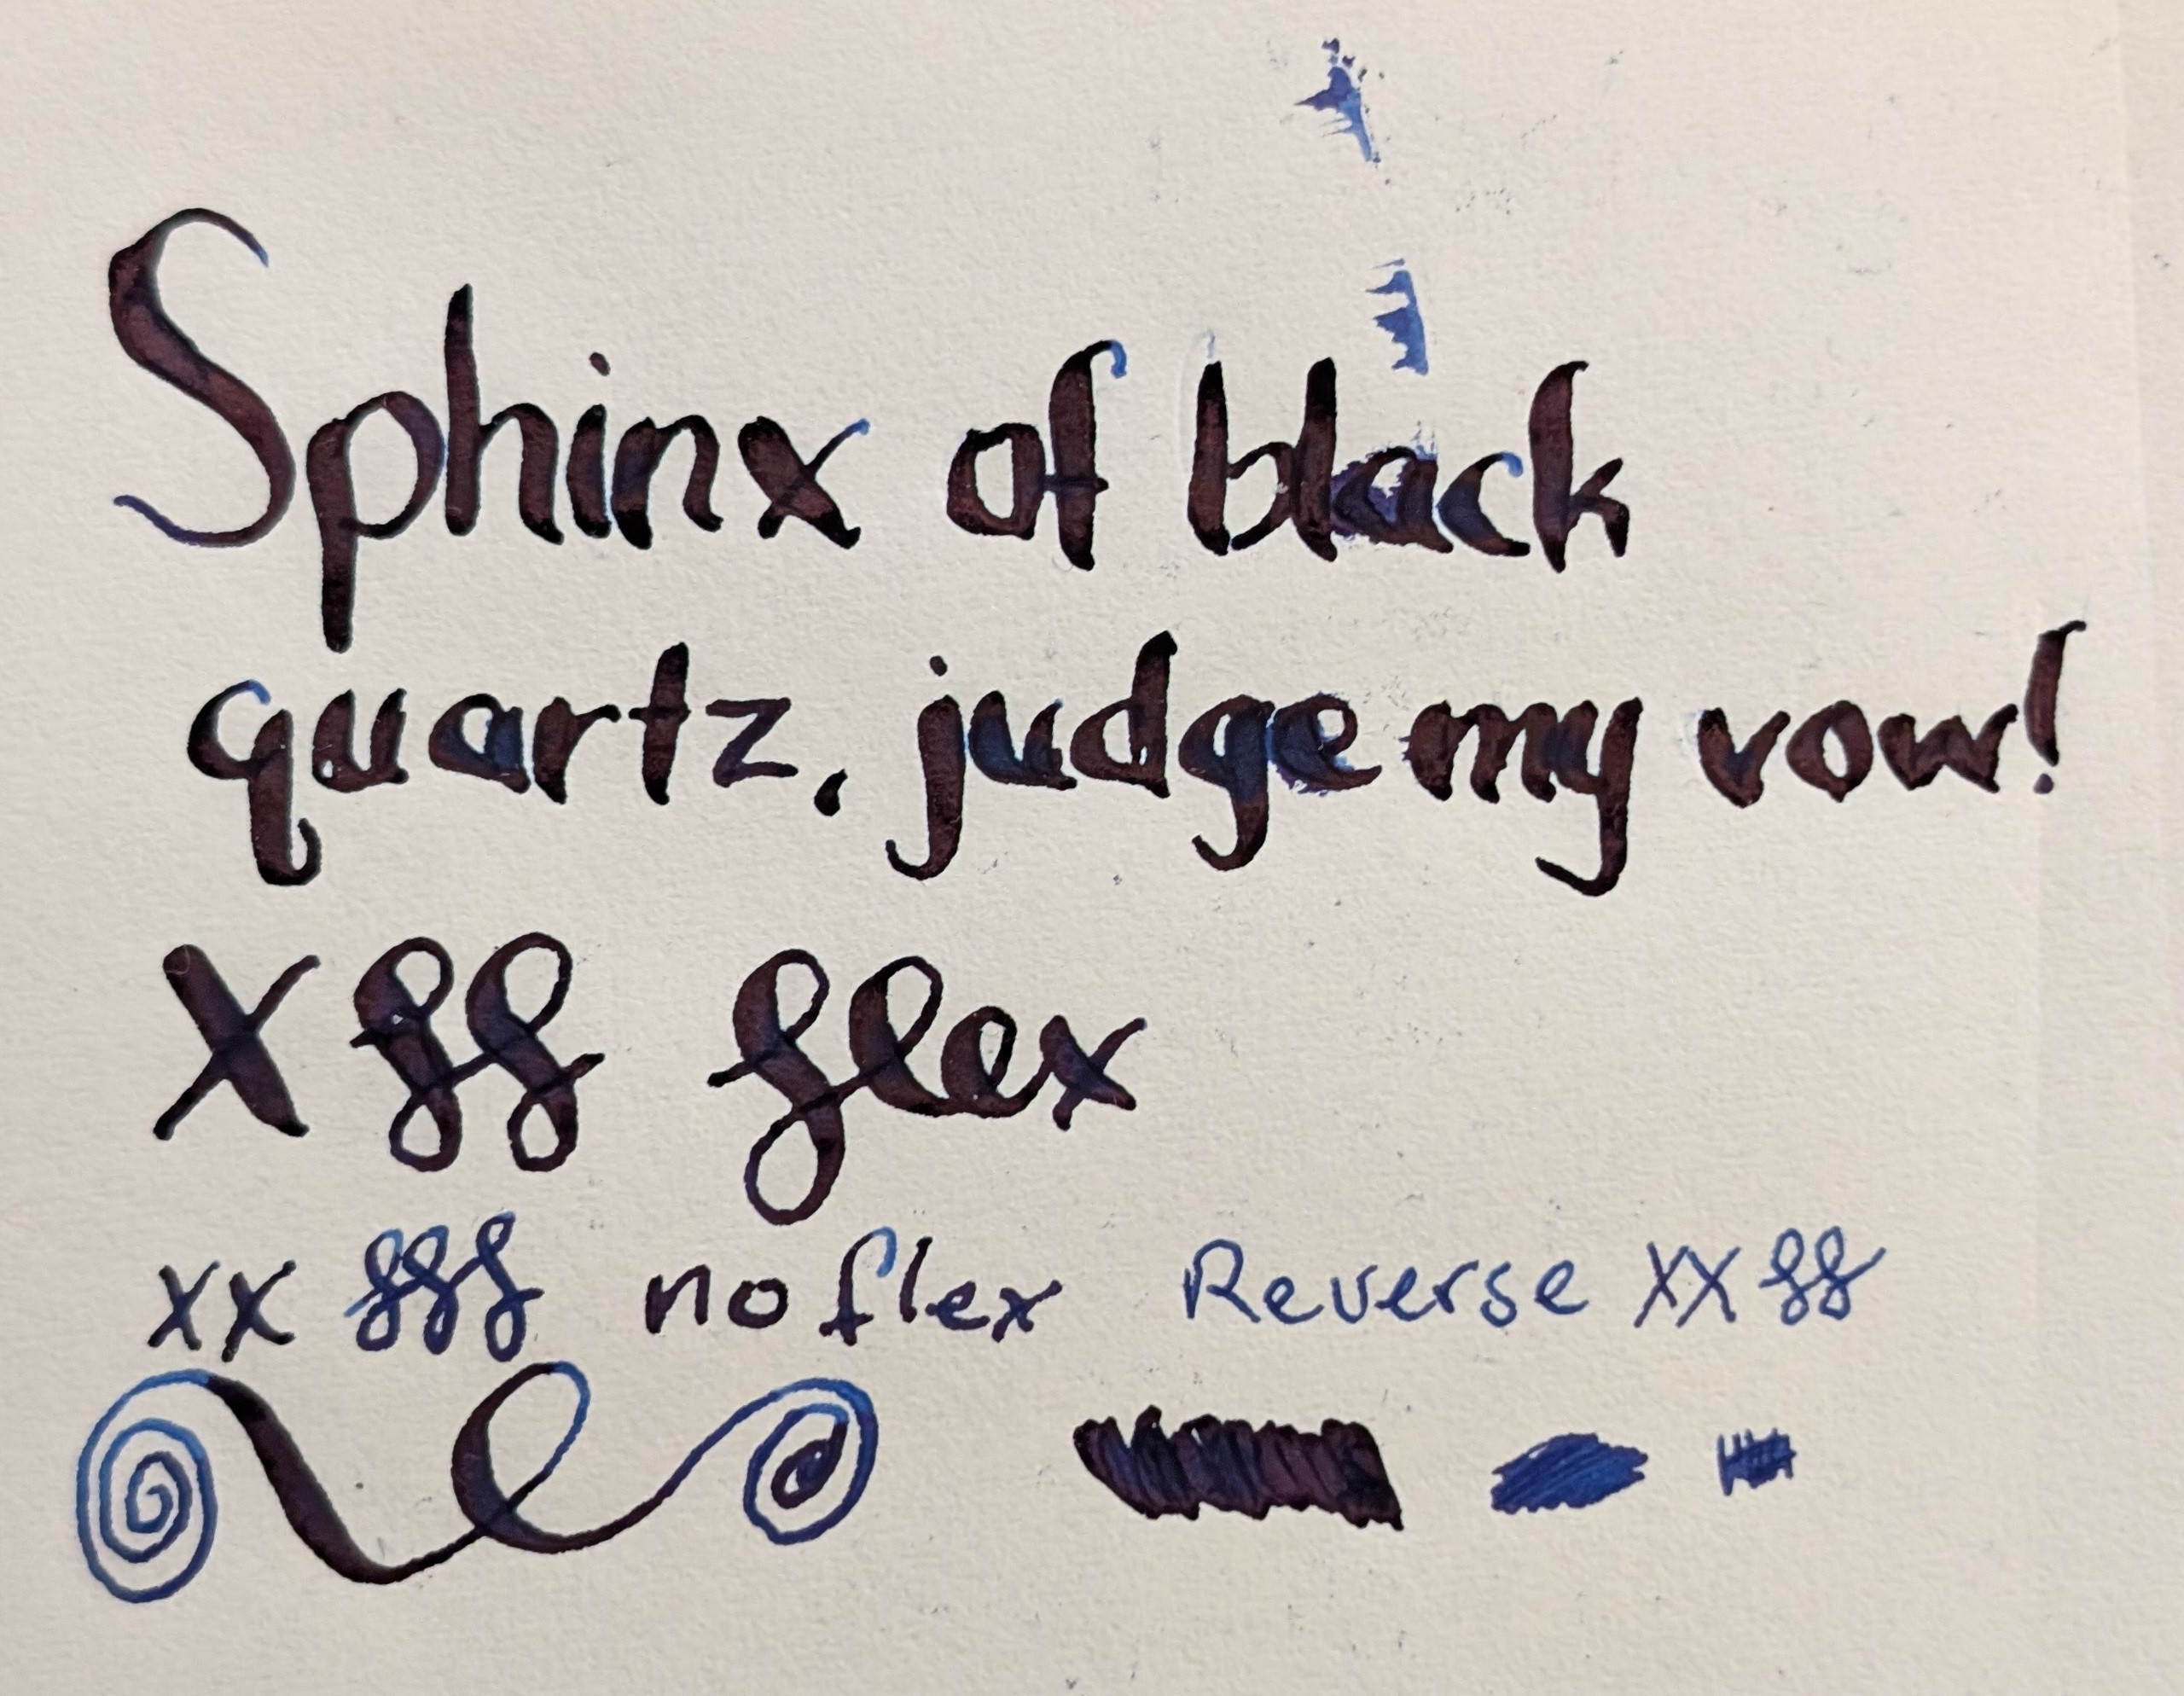 Sphinx of black
quartz, judge my vow!
X ff flex
xx fff no flex Reverse xx ff